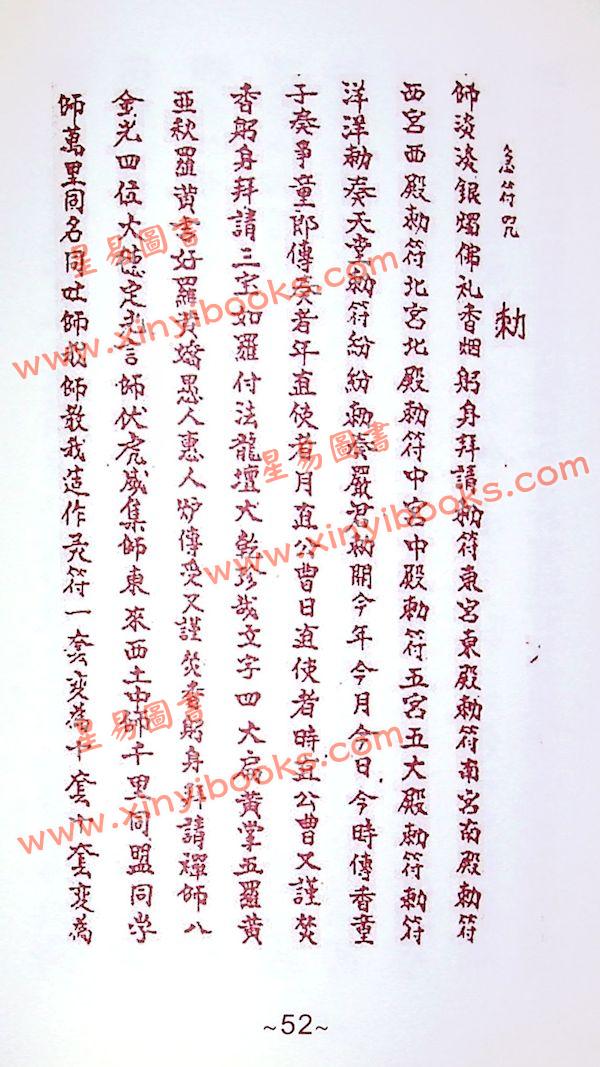 急符咒
勅
師淡淡銀燭佛礼香烟躬身拜請勅符東宮東殿勅符南宮南殿勅符
西宮西殿勅符北宮北殿勅符中宮中殿勅符五宮五大殿勅符勅符
洋洋勅奏天堂勅符紛紛勅奏嚴君勅開今年今月今日今時傳香童
子奏事童郎傳奏者年直使者月直公曹日直使者時直公曹又謹焚
香躬身拜請三宝如羅付法龍壇大乾珍哉文字四大扁黄掌五羅黄
亞秋羅黄書好羅黄嬌愚人惠人炉傳受又謹焚香躬身拜請禪師八
金光四位大德定光言師伏虎威集師東來西土中師千里同盟同学
師萬里同名同吐師教我造作灵符一套变為十套十套变為
星易圖書
www.xinyibooks.com
星易圖書
www.xinyibooks.com
星易圖書
www.xinyibooks.com
~52~